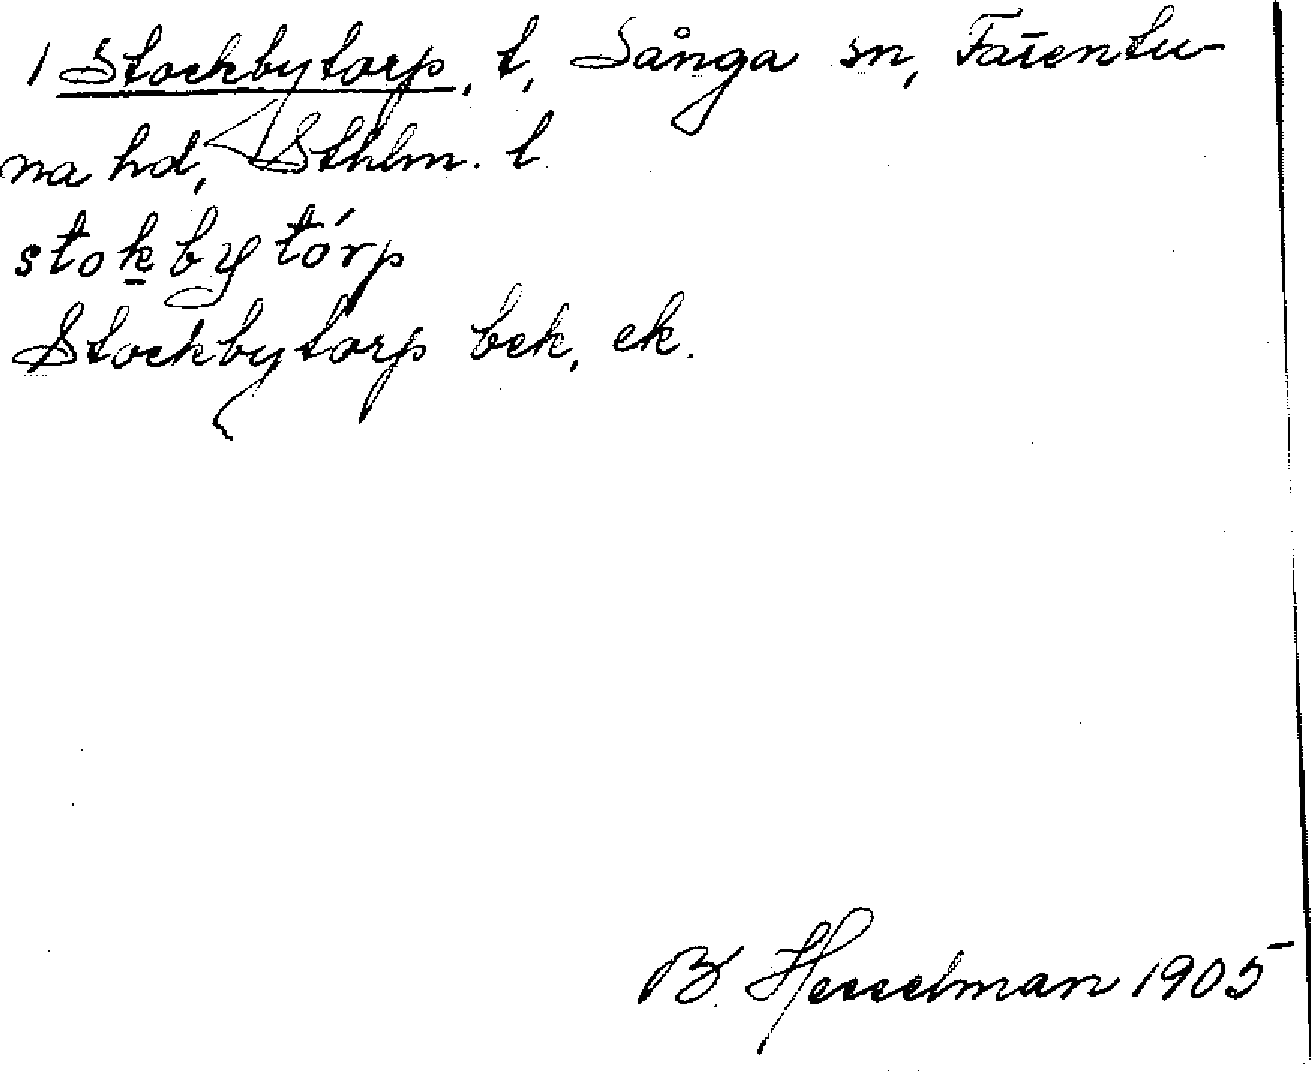 1 Stockbytorp, t, Sånga sn, Färentu-
na hd, Sthlm. l
stokbytórp
Stockbytorp bek, ek.
B. Hesselman 1905